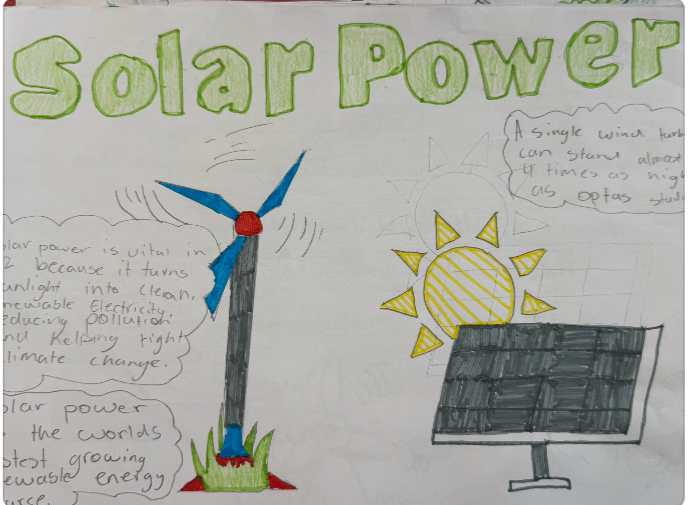 Solar Power
A single wind turb
can stand almost
4 times as high
as optas stadi
olar power is vital in
2 because it turns
unlight into clean,
newable Electricity
educing pollution
and helping fight
limate change.
olar power
the worlds
stest growing
ewable energy
urce.